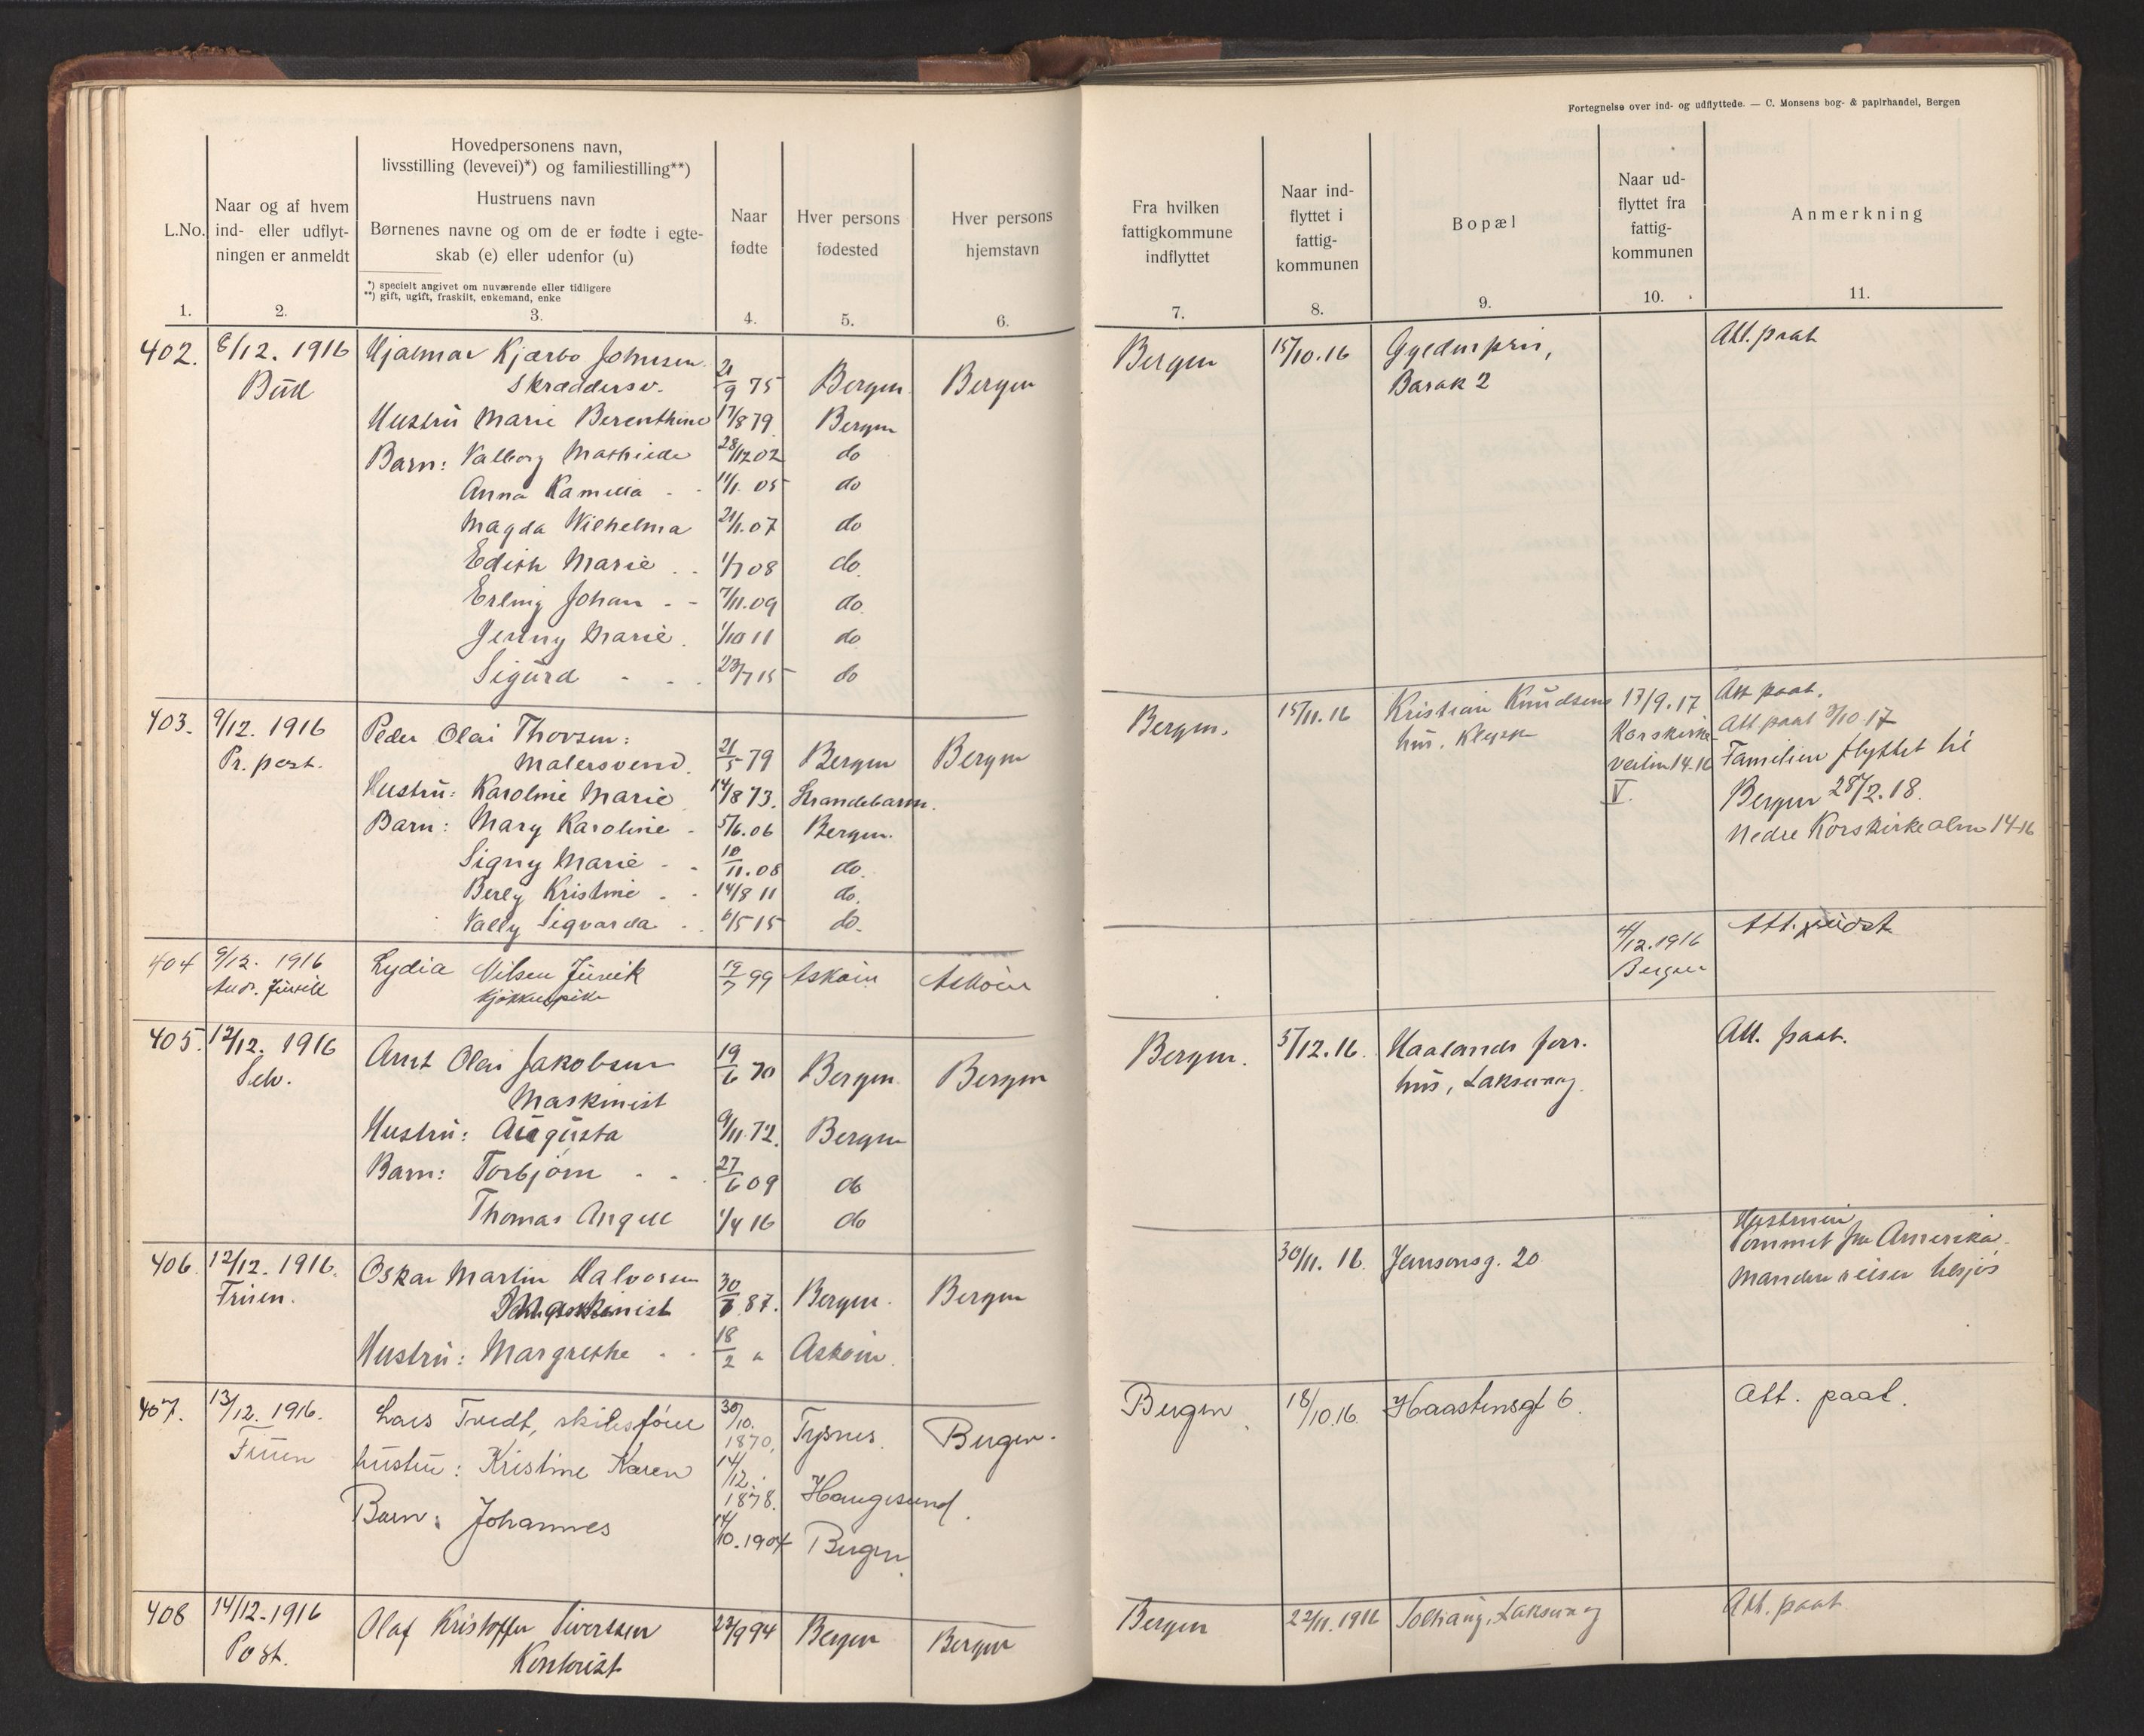 Fortegnelse over ind- og udflyttede. — C. Monsens bog- & papirhandel, Bergen
L.No.
1.
Naar og af hvem
ind- eller udflyt-
ningen er anmeldt
2.
Hovedpersonens navn,
livsstilling (levevei)*) og familiestilling**)
Hustruens navn
Børnenes navne og om de er fødte i egte-
skab (e) eller udenfor (u)
*) specielt angivet om nuværende eller tidligere
**) gift, ugift, fraskilt, enkemand, enke
3.
Naar
fødte
4.
Hver persons
fødested
5.
Hver persons
hjemstavn
6.
Fra hvilken
fattigkommune
indflyttet
7.
Naar ind-
flyttet i
fattig-
kommunen
8.
Bopæl
9.
Naar ud-
flyttet fra
fattig-
kommunen
10.
Anmerkning
11.
402. 8/12. 1916 Hjalmar Kjærbo Johnsen Bergen 15/10.16 Att. paat
Bud Skræddersv. 21/9 75 Bergen Bergen Barak 2
Hustru Marie Berenthine 17/8 79 Bergen
Barn: Valborg Mathilde 28/12 02 do
Anna Kamilla - - 11/1. 05 do
Magda Wilhelma 21/1.07 do
Edith Marie - - 1/7 08 do
Erling Johan - - 7/11.09 do
Jenny Marie. 1/10 11 do
Sigurd - - - 23/7 15 do
403. 9/12. 1916 Peder Olai Thorsen: Bergen. 15/11.16 Kristian Knudsens 17/9.17 Att paat.
Pr. post. Malersvend. 21/5 79 Bergen Bergen hus. Kleppe Korskirke- Att paat 3/10.17
Hustru: Karoline Marie 14/8 73. Strandebarm. veiten 14-16 Familien flyttet til
Barn: Mary Karoline - 5/6.06 Bergen. V. Bergen 28/2.18.
Signy Marie - - 10/11.08 do. Nedre Korskirkealm 14-16
Berly Kristine - - 14/8 11 do.
Vally Sigvarda - - 6/5 15 do.
404 9/12. 1916 Lydia Nilsen Juvik 19/7 99 Askøen Askøen 4/12.1916 Att. uidst
And. Juvik Kjøkkenpike Bergen
405. 12/12. 1916 Arnt Olai Jakobsen 19/6 70 Bergen Bergen Bergen. 5/12.16. Haalands forr. Att. paat.
Selv. Maskinist hus, Laksevaag.
Hustru: Augusta 9/11.72. Bergen
Barn: Torbjørn - - 27/6 09 do
Thomas Angell 1/4 16 do
406. 12/12. 1916. Oskar Martin Halvorsen 30/11. 16. Jansonsg. 20 Hustruen
kommet fra Amerika.
Fruen. Maskinist 87. Bergen. Bergen Manden reiser tilsjøs
Hustru: Margrethe - - 18/2 " Askøen.
407. 13/12. 1916. Lars Tvedt, skibsfører 30/10. 1870, Tysnes. Bergen. Bergen 18/10.16. Haasteinsgt 6. Att. paat.
Fruen hustru: Kristine Karen 14/12. 1878. Haugesund.
Barn: Johannes 14/10.1904 Bergen.
408 14/12-1916 Olaf Kristoffer Sivertsen 22/9 94 Bergen Bergen Bergen 22/11.1916 Solhaug, Laksevaag Att. paat
Post. Kontorist